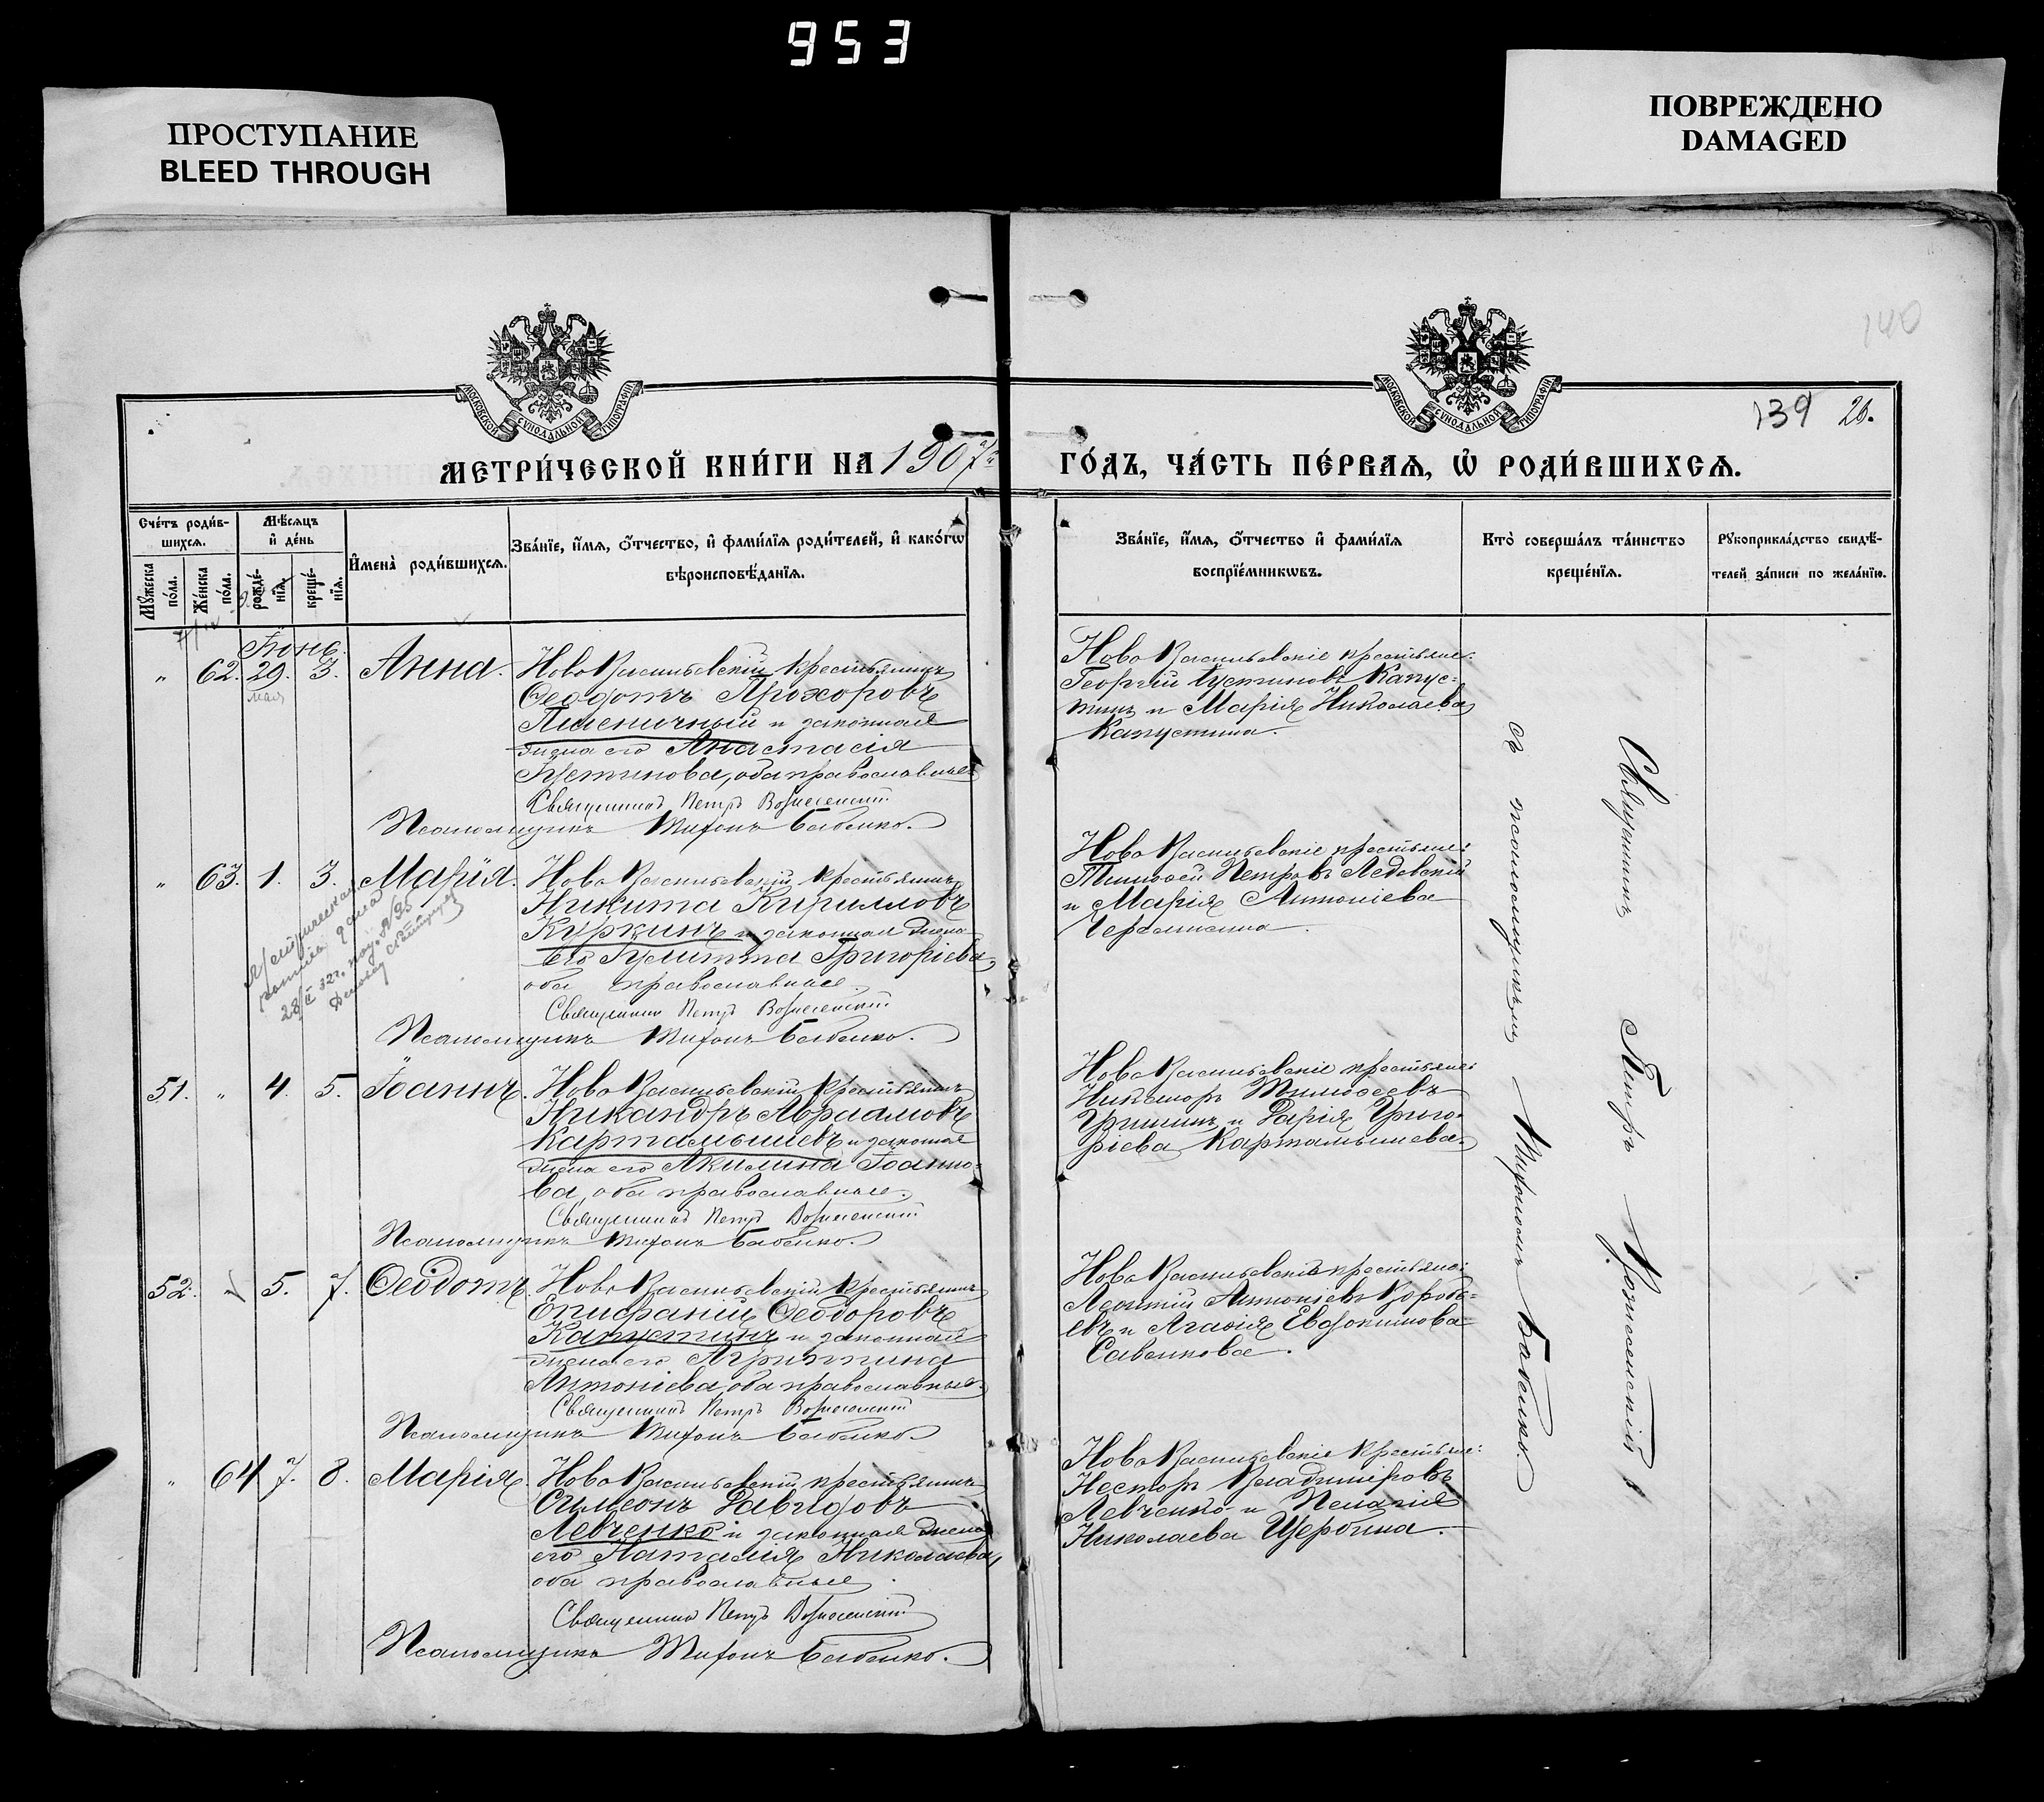 953
ПРОСТУПАНИЕ
BLEED THROUGH
ПОВРЕЖДЕНО
DAMAGED
140
МОСКОВСКОЙ СѴНОДАЛЬНОЙ ТИПОГРАФІИ
МОСКОВСКОЙ СѴНОДАЛЬНОЙ ТИПОГРАФІИ
139 26.
МЕТРИ́ЧЕСКОЙ КНИ́ГИ НА 1907й
ГО́ДЪ, ЧА́СТЬ ПЕ́РВАЯ, Ѡ РОДИ́ВШИХСЯ.
Сче́тъ роди́в-
шихся.
Мѣ́сяцъ
и де́нь
Мꙋ́жеска по́ла.
Же́нска по́ла.
рожде́-
нїя.
креще́-
нїя.
И҆мена̀ роди́вшихся.
Зва́нїе, и҆́мя, ѻ҆́тчество, и҆ фами́лїя роди́телей, и҆ како́гѡ
вѣроисповѣ́данїя.
Зва́нїе, и҆́мя, ѻ҆́тчество и҆ фами́лїя
воспрїе́мникѡвъ.
Кто̀ соверша́лъ та́инство
креще́нїя.
Рꙋкоприкла́дство свидѣ́-
телей за́писи по жела́нїю.
Іюнь.
" 62. 29. 3. Анна. Ново Васильевскій крестьянинъ
мая
Ѳеодотъ Прохоровъ
Пшеничный и законная
жена его Анастасія
Іустинова, оба православные
Священникъ Петръ Вознесенскій
Псаломщикъ Тихонъ Бабенко.
Ново Васильевскіе крестьяне:
Георгій Іустиновъ Капус-
тинъ и Марія Николаева
Капустина.
" 63. 1. 3. Марія. Ново Васильевскій крестьянинъ
Никита Кирилловъ
Куркинъ и законная жена
его Іулитта Григоріева,
оба православные.
Священникъ Петръ Вознесенскій
Псаломщикъ Тихонъ Бабенко.
Ново Васильевскіе крестьяне:
Тимоѳей Петровъ Ледовскій
и Марія Антоніева
51. " 4. 5. Іоаннъ. Ново Васильевскій крестьянинъ
Никандръ Авраамовъ
Картамышевъ и законная
жена его Акилина Іоанно-
ва, оба православные.
Священникъ Петръ Вознесенскій
Псаломщикъ Тихонъ Бабенко.
Ново Васильевскіе крестьяне:
Никаноръ Тимоѳеевъ
Гришинъ и Дарія Григо-
ріева Картамышева.
52. " 5. 7. Ѳеодотъ. Ново Васильевскій крестьянинъ
Епифаній Ѳеодоровъ
Капустинъ и законная
жена его Агриппина
Антоніева, оба православные.
Священникъ Петръ Вознесенскій
Псаломщикъ Тихонъ Бабенко.
Ново Васильевскіе крестьяне:
Леонтій Антоніевъ Коробо-
евъ и Агаѳія Евдокимова
Савенкова.
" 64 7. 8. Марія. Ново Васильевскій крестьянинъ
Сѵмеонъ Давидовъ
Левченко и законная жена
его Наталія Николаева,
оба православные.
Священникъ Петръ Вознесенскій
Псаломщикъ Тихонъ Бабенко.
Ново Васильевскіе крестьяне:
Несторъ Владиміровъ
Левченко и Пелагія
Николаева Щербина.
Священникъ Петръ Вознесенскій
съ псаломщикомъ Тихономъ Бабенко.